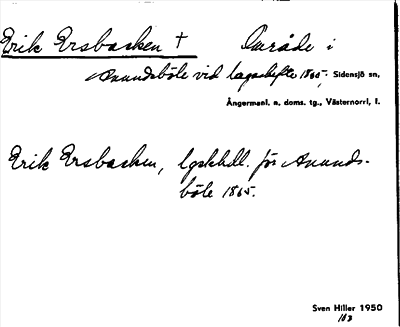 Erik Ersbacken † Område i
Anundsböle vid lagaskifte 1865. Sidensjö sn,
Ångermanl. n. doms. tg., Västernorrl. l.
Erik Ersbacken, lgskhdl. för Anunds-
böle 1865.
Sven Hiller 1950
163